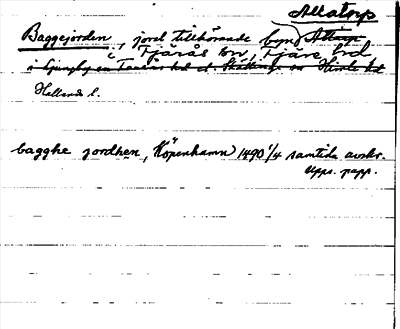 Allatorp
Baggejorden, jord tillhörande byn Attrup
i Tjärås sn, Fjäre hd
i Ljungby sn
Hallands l.
bagghe jordhen, Köpenhamn 1490 1/4 samtida avskr.
Upps. papp.